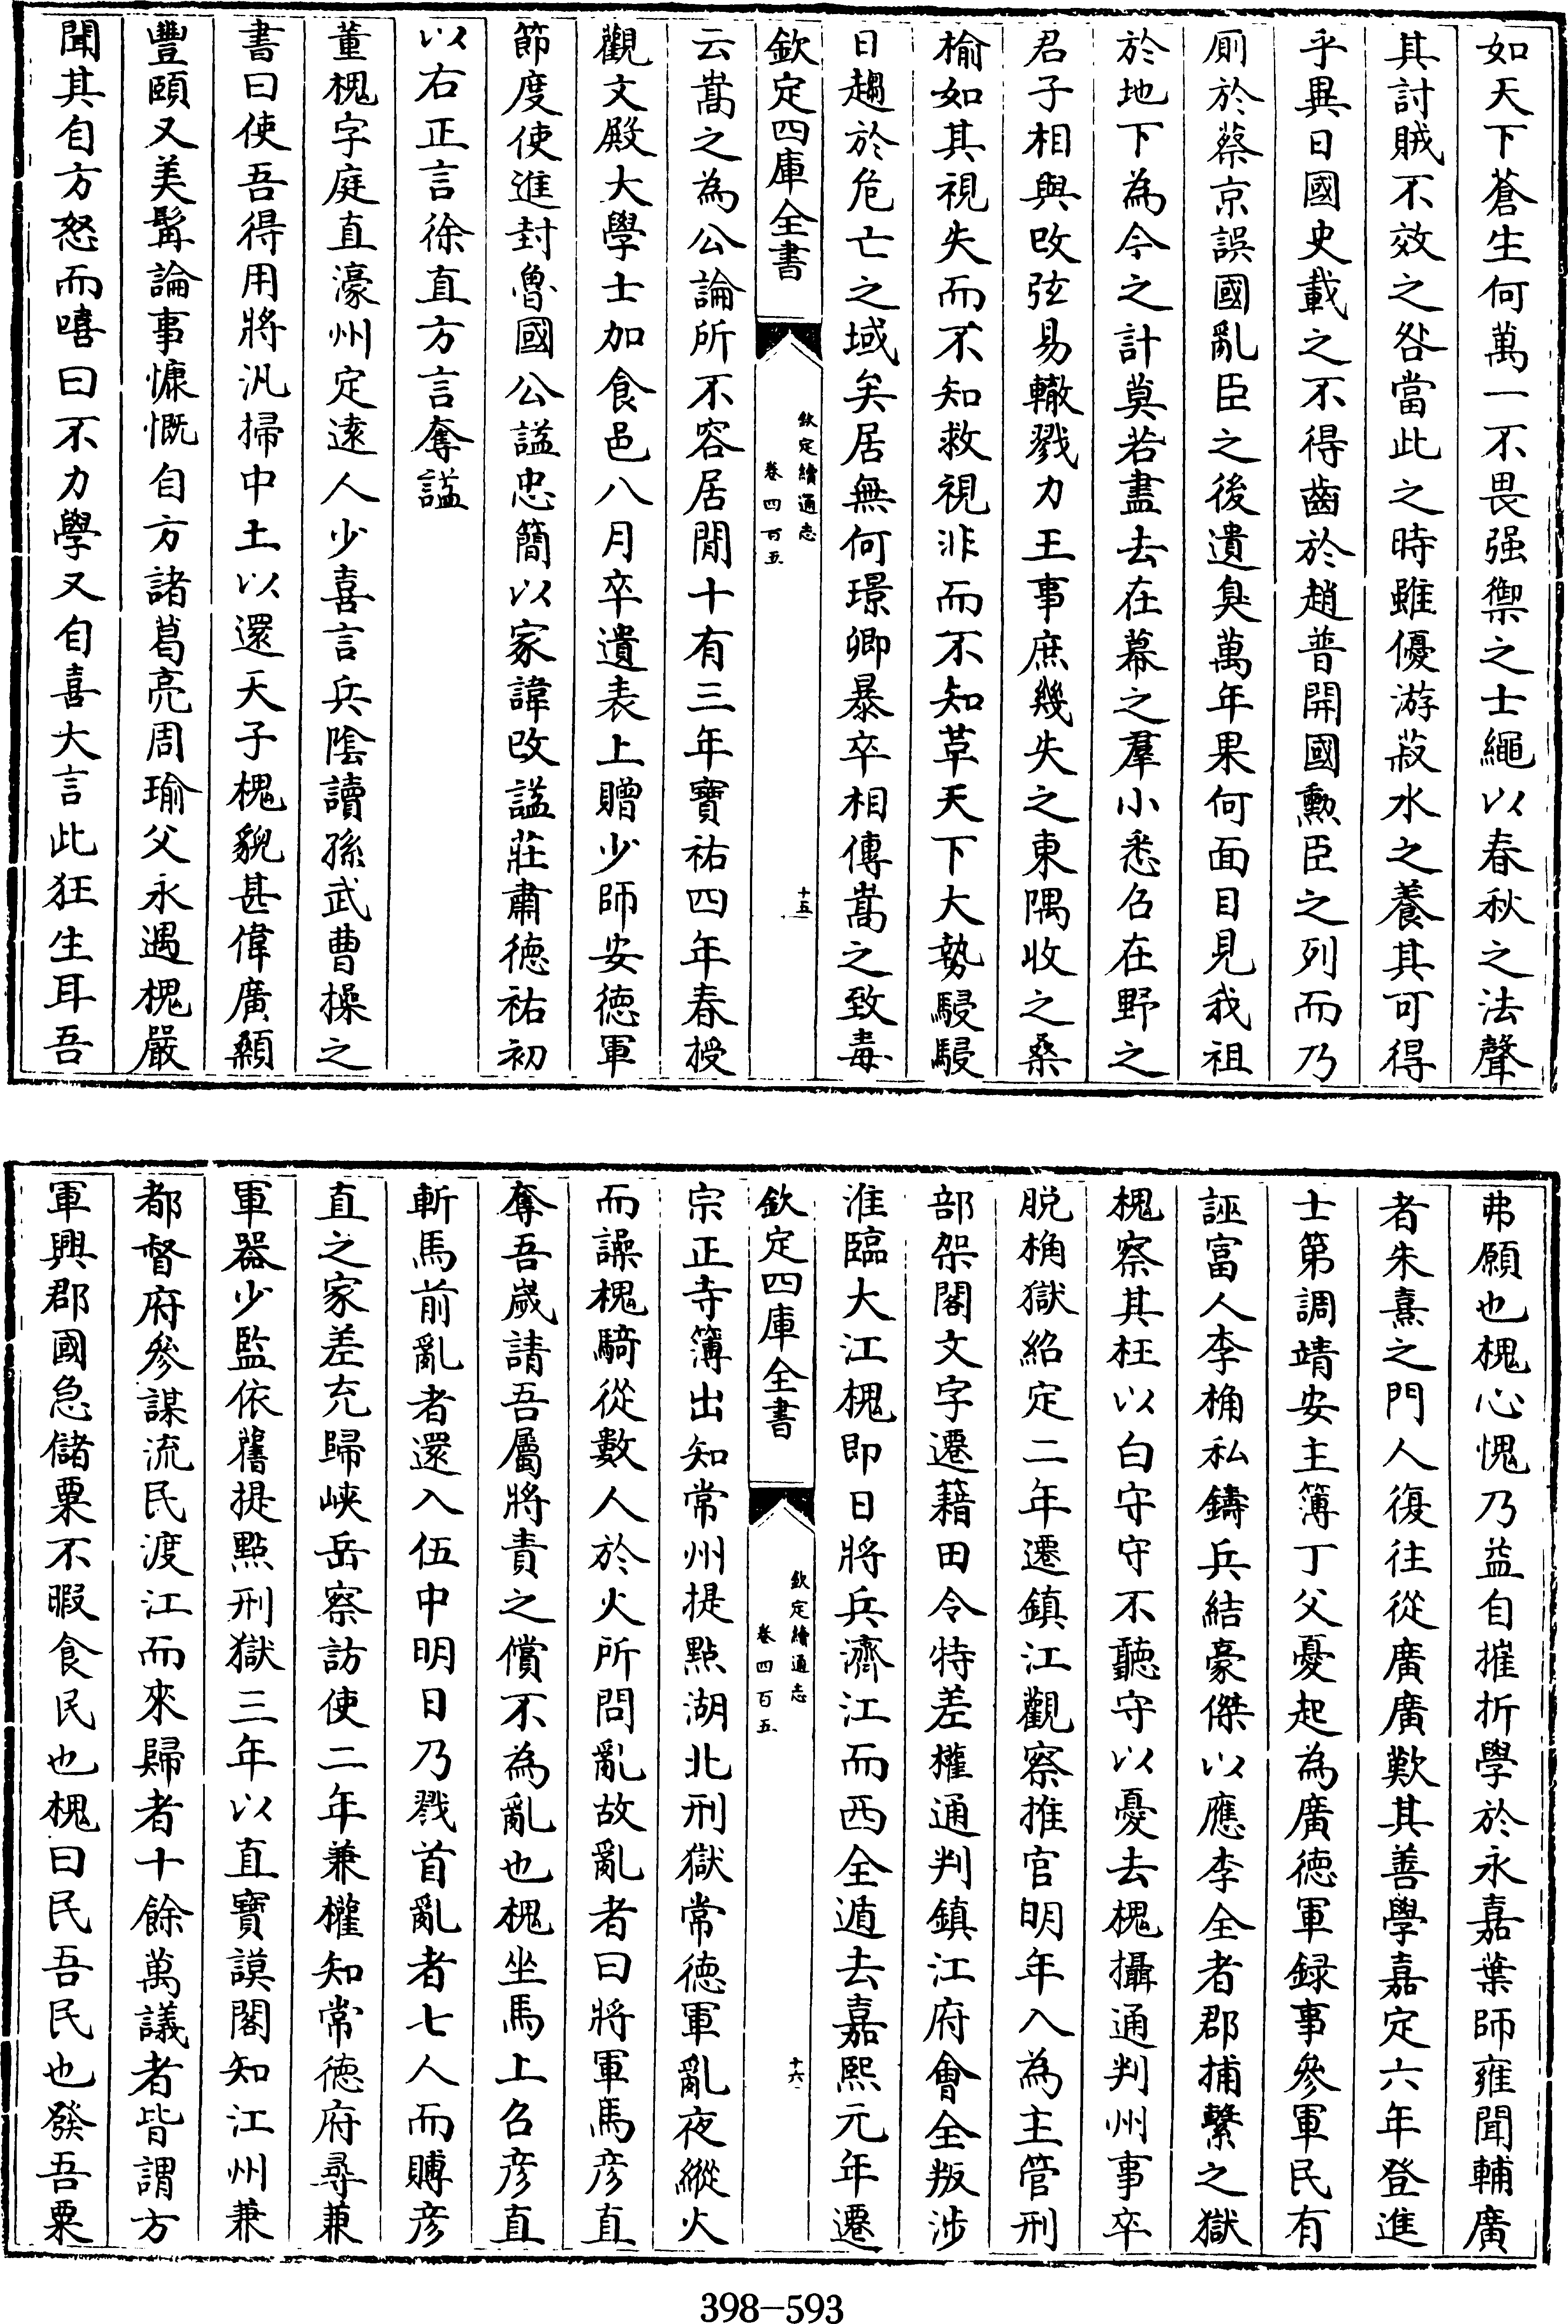 如天下蒼生何萬一不畏强禦之士繩以春秋之法聲
其討賊不效之咎當此之時雖優游菽水之養其可得
乎異日國史載之不得齒於趙普開國勲臣之列而乃
厠於蔡京誤國亂臣之後遺臭萬年果何面目見我祖
於地下為今之計莫若盡去在幕之羣小悉召在野之
君子相與改弦易轍戮力王事庶幾失之東隅收之桑
榆如其視失而不知救視非而不知革天下大勢駸駸
日趨於危亡之域矣居無何璟卿暴卒相傳嵩之致毒
欽定四庫全書
欽定續通志
卷四百五
十五
云嵩之為公論所不容居閒十有三年寶祐四年春授
觀文殿大學士加食邑八月卒遺表上贈少師安德軍
節度使進封魯國公謚忠簡以家諱改謚莊肅德祐初
以右正言徐直方言奪謚
董槐字庭直濠州定逺人少喜言兵陰讀孫武曹操之
書曰使吾得用將汎掃中土以還天子槐貌甚偉廣顙
豐頤又美髯論事慷慨自方諸葛亮周瑜父永遇槐嚴
聞其自方怒而嘻曰不力學又自喜大言此狂生耳吾
弗願也槐心愧乃益自摧折學於永嘉葉師雍聞輔廣
者朱熹之門人復往從廣廣歎其善學嘉定六年登進
士第調靖安主簿丁父憂起為廣德軍録事參軍民有
誣富人李桷私鑄兵結豪傑以應李全者郡捕繫之獄
槐察其枉以白守守不聽守以憂去槐攝通判州事卒
脱桷獄紹定二年遷鎮江觀察推官明年入為主管刑
部架閣文字遷籍田令特差權通判鎮江府會全叛涉
淮臨大江槐即日將兵濟江而西全遁去嘉熙元年遷
欽定四庫全書
欽定續通志
卷四百五
十六
宗正寺簿出知常州提點湖北刑獄常德軍亂夜縱火
而譟槐騎從數人於火所問亂故亂者曰將軍馬彦直
奪吾歲請吾屬將責之償不為亂也槐坐馬上召彦直
斬馬前亂者還入伍中明日乃戮首亂者七人而賻彦
直之家差充歸峽岳察訪使二年兼權知常德府尋兼
軍器少監依舊提點刑獄三年以直寶謨閣知江州兼
都督府參謀流民渡江而來歸者十餘萬議者皆謂方
軍興郡國急儲粟不暇食民也槐曰民吾民也發吾粟
398-593